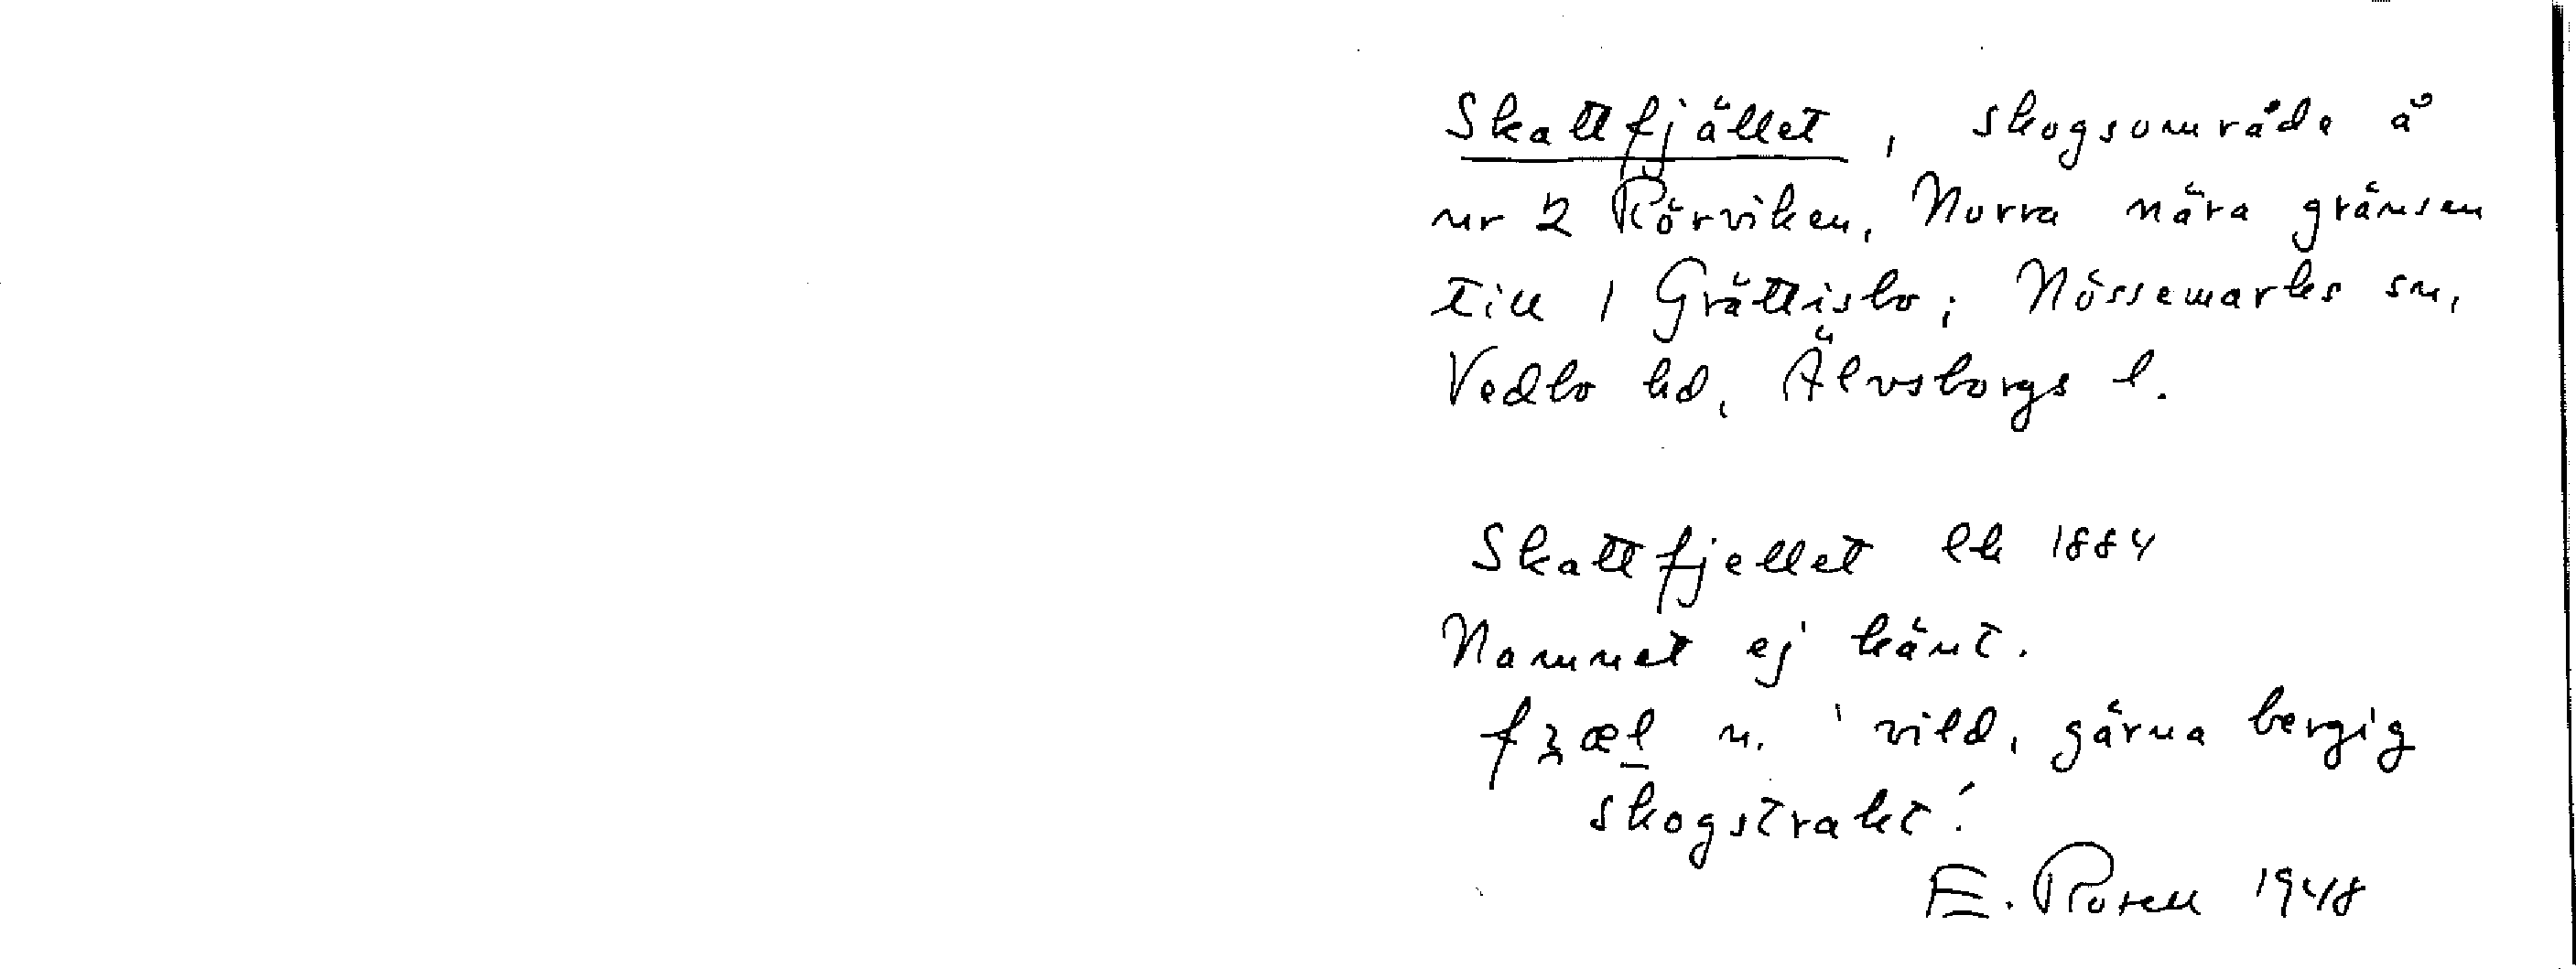 Skattfjället, skogsområde å
nr 2 Rörviken, Norra nära gränsen
till 1 Grättisbo; Nössemarks sn,
Vedbo hd, Älvsborgs l.
Skattfjellet lk 1884
Namnet ej känt.
fʒæl n. 'vild, gärna bergig
skogstrakt'.
E. Rosell 1948